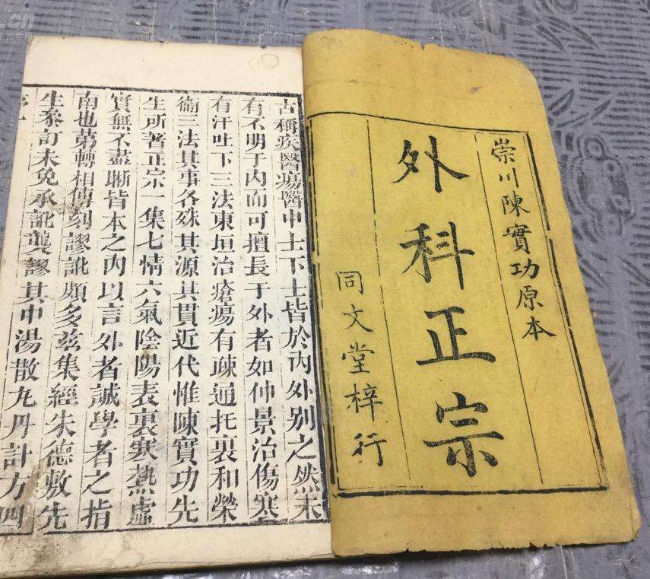 崇川陳實功原本
外科正宗
同文堂梓行
古稱疾醫瘍醫中士下士皆於內外別之然未
有不明于内而可擅長于外者如仲景治傷寒
有汗吐下三法東垣治瘡瘍有疎通托裏和榮
衛三法其事各殊其源其貫近代惟陳實功先
生所著正宗一集七情六氣陰陽表裏寒熱虛
實無不盡晰皆本之内以言外者誠學者之指
南也苐轉相傳刻謬訛頗多兹集經朱德敷先
生叅訂未免承訛襲謬其中湯散丸丹計方四